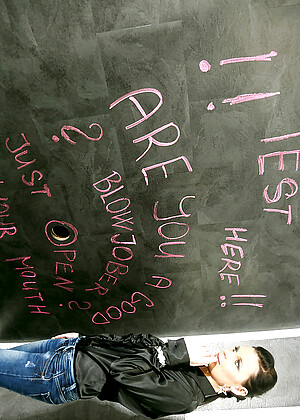 !! TEST
HERE !!
ARE YOU A GOOD
? BLOWJOBER ?
JUST OPEN
YOUR MOUTH